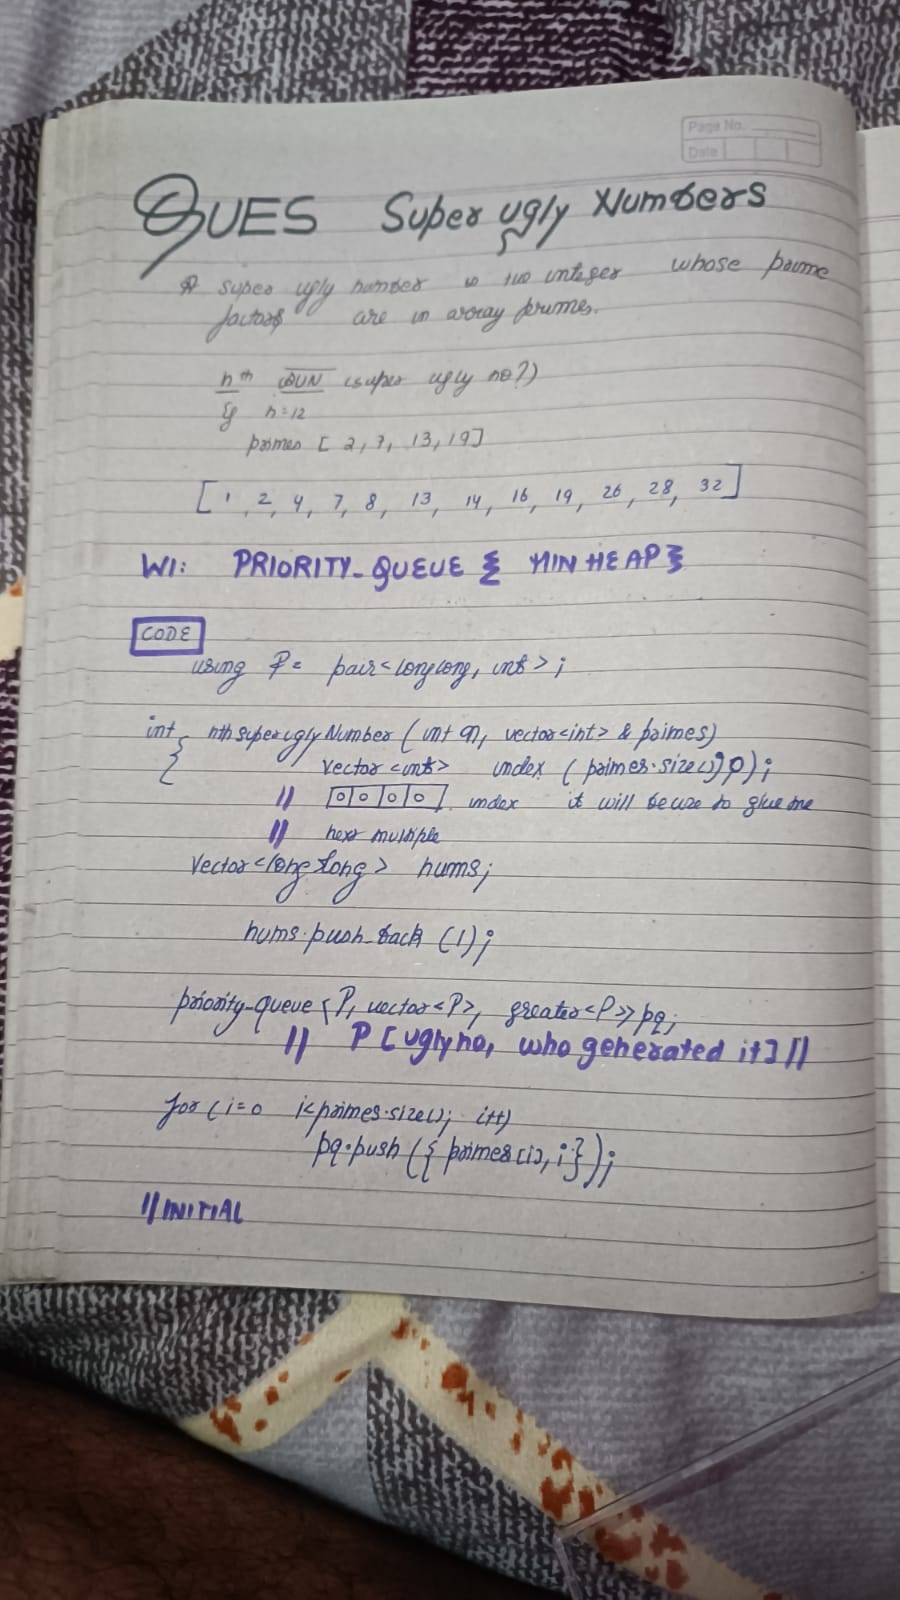 Page No.
Date
QUES Super ugly Numbers
A super ugly number is +ve integer whose prime
factors are in array primes.
nth SUN (super ugly no?)
n=12
primes [ 2, 7, 13, 19]
[ 1, 2, 4, 7, 8, 13, 14, 16, 19, 26, 28, 32 ]
W1: PRIORITY_QUEUE { MIN HEAP }
CODE
using P = pair<long long, int>;
int nthsuperuglyNumber ( int n, vector<int> & primes)
{ vector <int> index ( primes.size(), 0);
// [0|0|0|0] index it will be use to give me
// next multiple
vector<long long> nums;
nums.push_back (1);
priority-queue <P, vector<P>, greater<P>> pq;
// P [ugly no, who generated it] //
for ( i=0 i<primes.size(); i++)
pq.push ({ primes[i], i });
// INITIAL